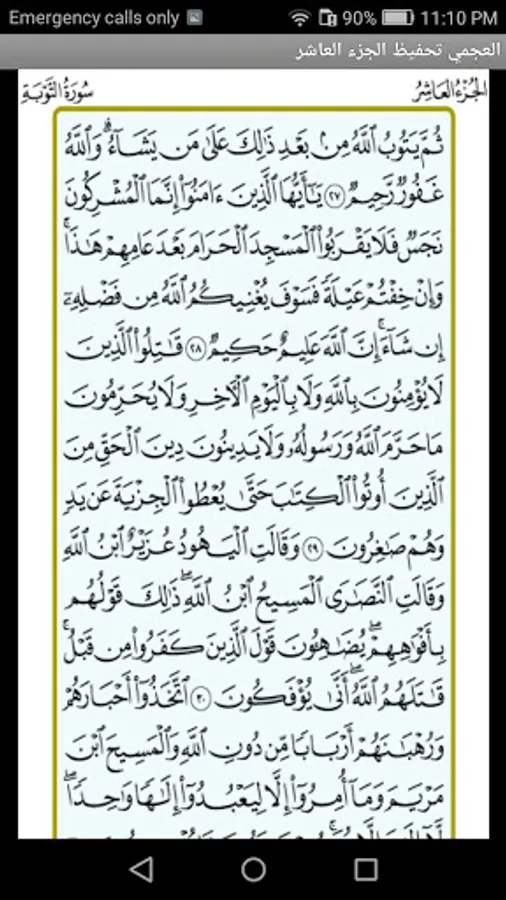 Emergency calls only 90% 11:10 PM
العجمي تحفيظ الجزء العاشر
الجُزْءُ العَاشِرُ سُورَةُ التَّوْبَةِ
ثُمَّ يَتُوبُ ٱللَّهُ مِنۢ بَعْدِ ذَٰلِكَ عَلَىٰ مَن يَشَآءُ ۗ وَٱللَّهُ
غَفُورٌ رَّحِيمٌ ٢٧ يَٰٓأَيُّهَا ٱلَّذِينَ ءَامَنُوٓا۟ إِنَّمَا ٱلْمُشْرِكُونَ
نَجَسٌ فَلَا يَقْرَبُوا۟ ٱلْمَسْجِدَ ٱلْحَرَامَ بَعْدَ عَامِهِمْ هَٰذَا ۚ
وَإِنْ خِفْتُمْ عَيْلَةً فَسَوْفَ يُغْنِيكُمُ ٱللَّهُ مِن فَضْلِهِۦٓ
إِن شَآءَ ۚ إِنَّ ٱللَّهَ عَلِيمٌ حَكِيمٌ ٢٨ قَٰتِلُوا۟ ٱلَّذِينَ
لَا يُؤْمِنُونَ بِٱللَّهِ وَلَا بِٱلْيَوْمِ ٱلْءَاخِرِ وَلَا يُحَرِّمُونَ
مَا حَرَّمَ ٱللَّهُ وَرَسُولُهُۥ وَلَا يَدِينُونَ دِينَ ٱلْحَقِّ مِنَ
ٱلَّذِينَ أُوتُوا۟ ٱلْكِتَٰبَ حَتَّىٰ يُعْطُوا۟ ٱلْجِزْيَةَ عَن يَدٍ
وَهُمْ صَٰغِرُونَ ٢٩ وَقَالَتِ ٱلْيَهُودُ عُزَيْرٌ ٱبْنُ ٱللَّهِ
وَقَالَتِ ٱلنَّصَٰرَى ٱلْمَسِيحُ ٱبْنُ ٱللَّهِ ۖ ذَٰلِكَ قَوْلُهُم
بِأَفْوَٰهِهِمْ ۖ يُضَٰهِـُٔونَ قَوْلَ ٱلَّذِينَ كَفَرُوا۟ مِن قَبْلُ ۚ
قَٰتَلَهُمُ ٱللَّهُ ۚ أَنَّىٰ يُؤْفَكُونَ ٣٠ ٱتَّخَذُوٓا۟ أَحْبَارَهُمْ
وَرُهْبَٰنَهُمْ أَرْبَابًا مِّن دُونِ ٱللَّهِ وَٱلْمَسِيحَ ٱبْنَ
مَرْيَمَ وَمَآ أُمِرُوٓا۟ إِلَّا لِيَعْبُدُوٓا۟ إِلَٰهًا وَٰحِدًا ۖ